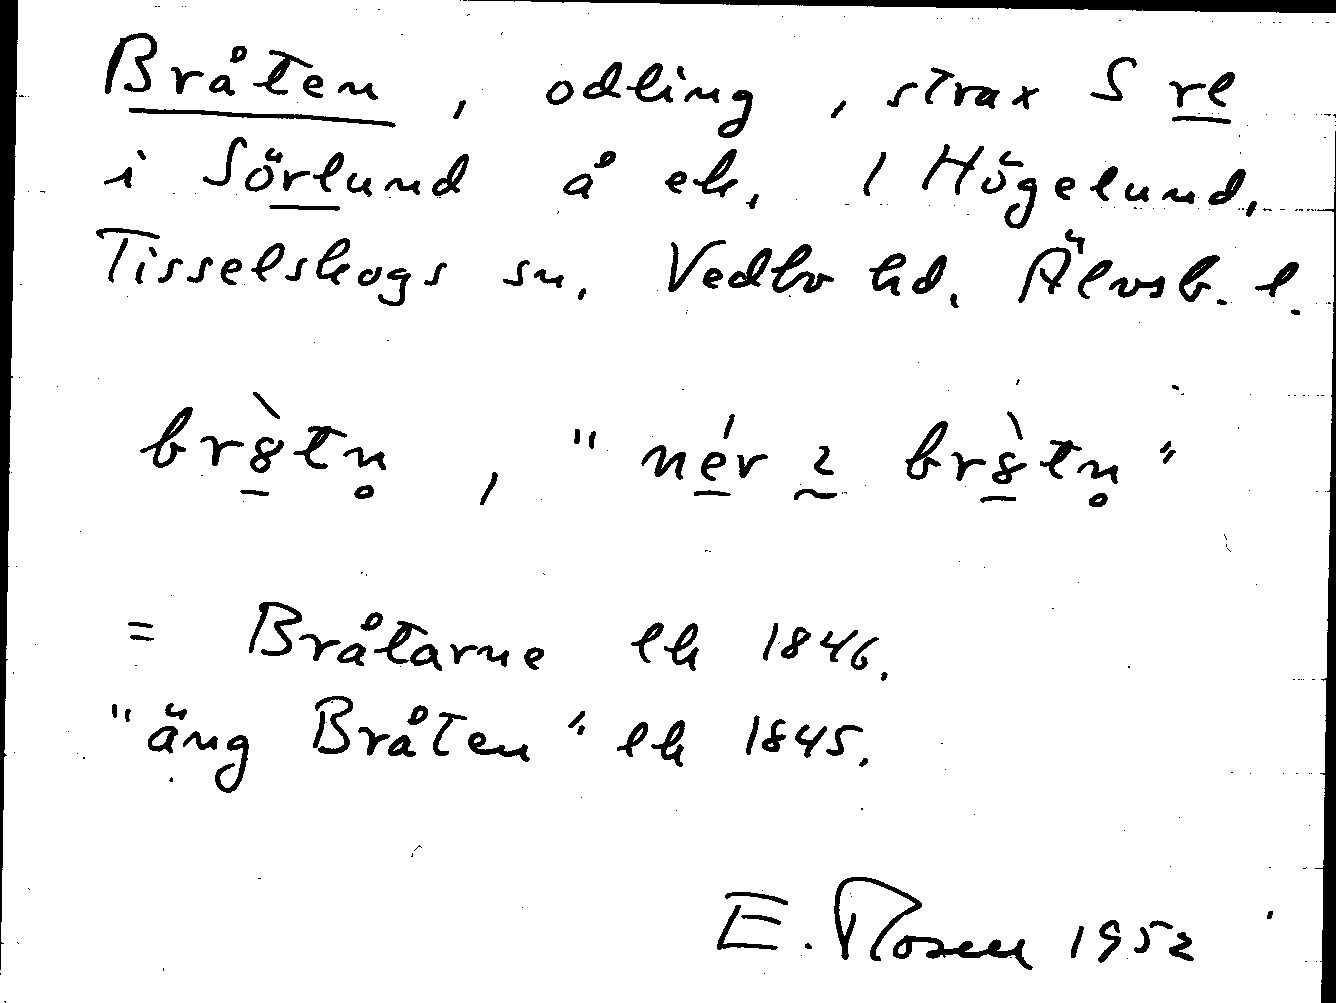 Bråten, odling, strax S rl
i Sörlund å ek, 1 Högelund,
Tisselskogs sn, Vedbo hd, Älvsb. l.
brò̱tn̥, "nér i brò̱tn̥"
= Bråtarne lk 1846.
"äng Bråten" lk 1845.
E. Rosen 1952